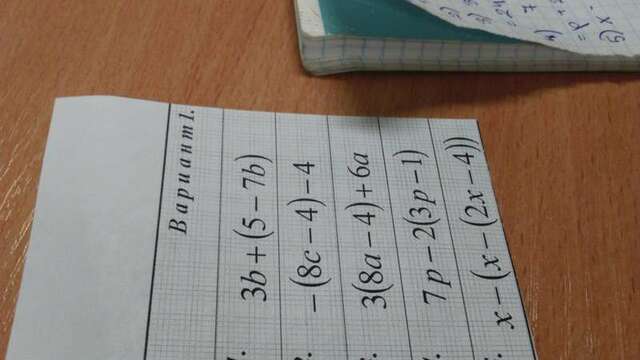 Вариант 1.
3b + (5 – 7b)
–(8c – 4) – 4
3(8a – 4) + 6a
7p – 2(3p – 1)
x – (x – (2x – 4))